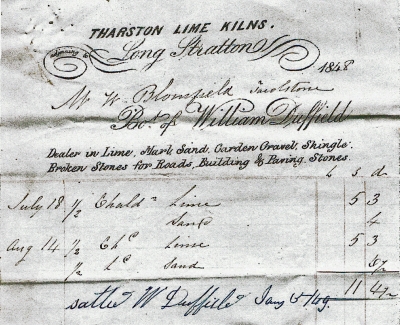 THARSTON LIME KILNS.
adjoining to
Long Stratton
1848
Mr W. Blomfield Tacolstone
Bot. of William Duffield
Dealer in Lime, Marl, Sand, Garden Gravel, Shingle.
Broken Stones for Roads, Building & Paving Stones.
£ s d
July 18 1/2 Chald Lime 5 3
Sand 4
Aug 14 1/2 Chd Lime 5 3
1/2 Ld Sand 6 1/2
11 4 1/2
W Duffield Jany /49